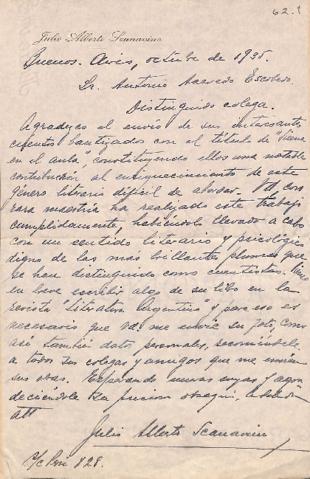 62.1
Julio Alberto Scanavino
Buenos Aires, octubre de 1935.
Sr. Antonio Acevedo Escobedo
Distinguido colega.
Agradezco el envío de sus interesantes
cuentos bautizados con el título de "Sirena
en el aula", constituyendo ellos una notable
contribución al enriquecimiento de este
género literario difícil de abordar. Vd con
rara maestría ha realizado este trabajo
cumplidamente, habiéndolo llevado a cabo
con un sentido literario y psicológico
digno de las más brillantes plumas que
se han distinguido como cuentistas.
en breve escribir algo de su libro en la
revista "Literatura Argentina" y para eso es
necesario que Vd. me envíe su foto, como
así también datos personales,
a todos sus colegas y amigos que me envíen
sus obras. Esperando nuevas suyas y agra-
deciéndole su obsequio, lo saluda
Att
Julio Alberto Scanavino
828.